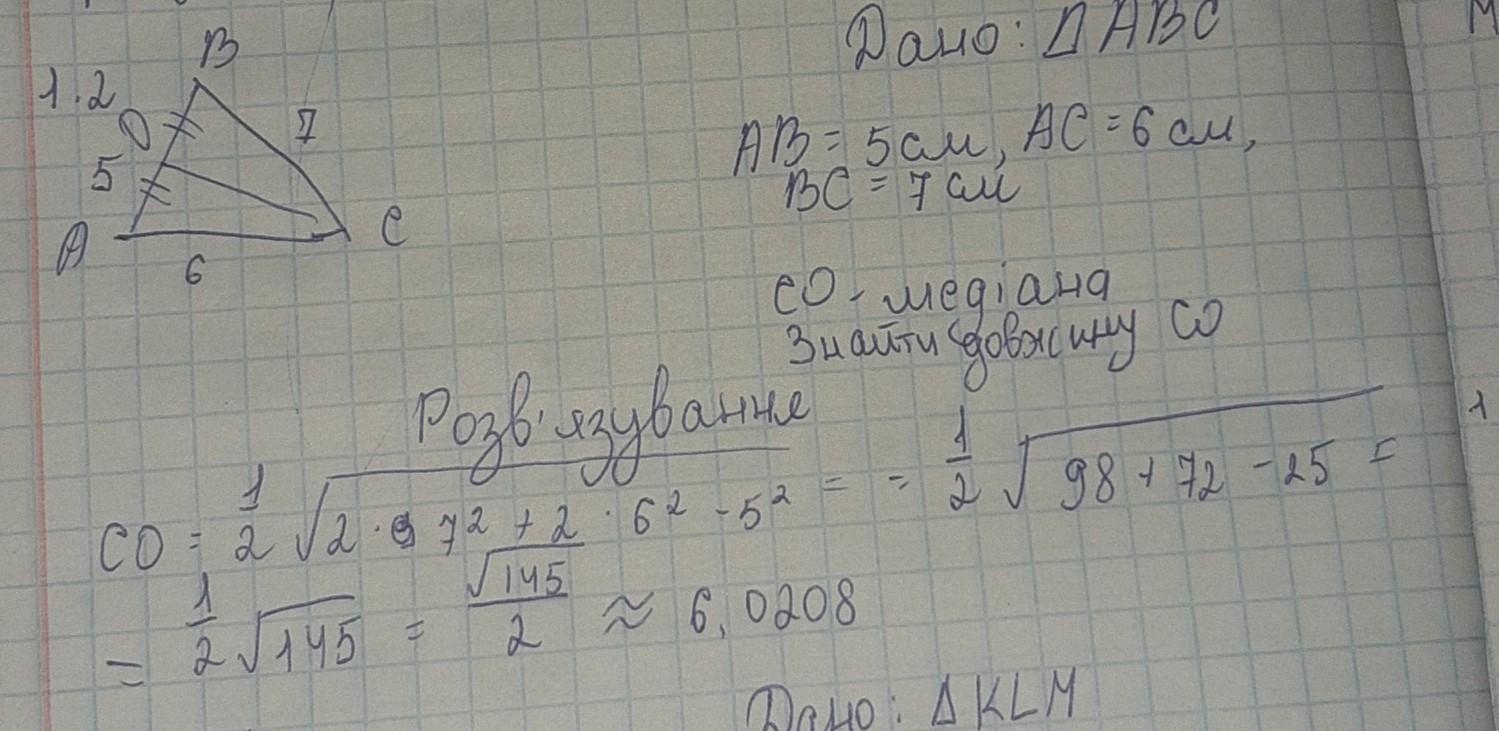 Дано: ΔABC
1.2
B
O
7
5
A
C
6
AB = 5 см, AC = 6 см,
BC = 7 см
CO - медіана
Знайти довжину CO
Розв'язування
CO = 1/2 √(2 · 7² + 2 · 6² - 5²) = = 1/2 √(98 + 72 - 25) =
= 1/2 √145 = √145/2 ≈ 6,0208
Дано: ΔKLM